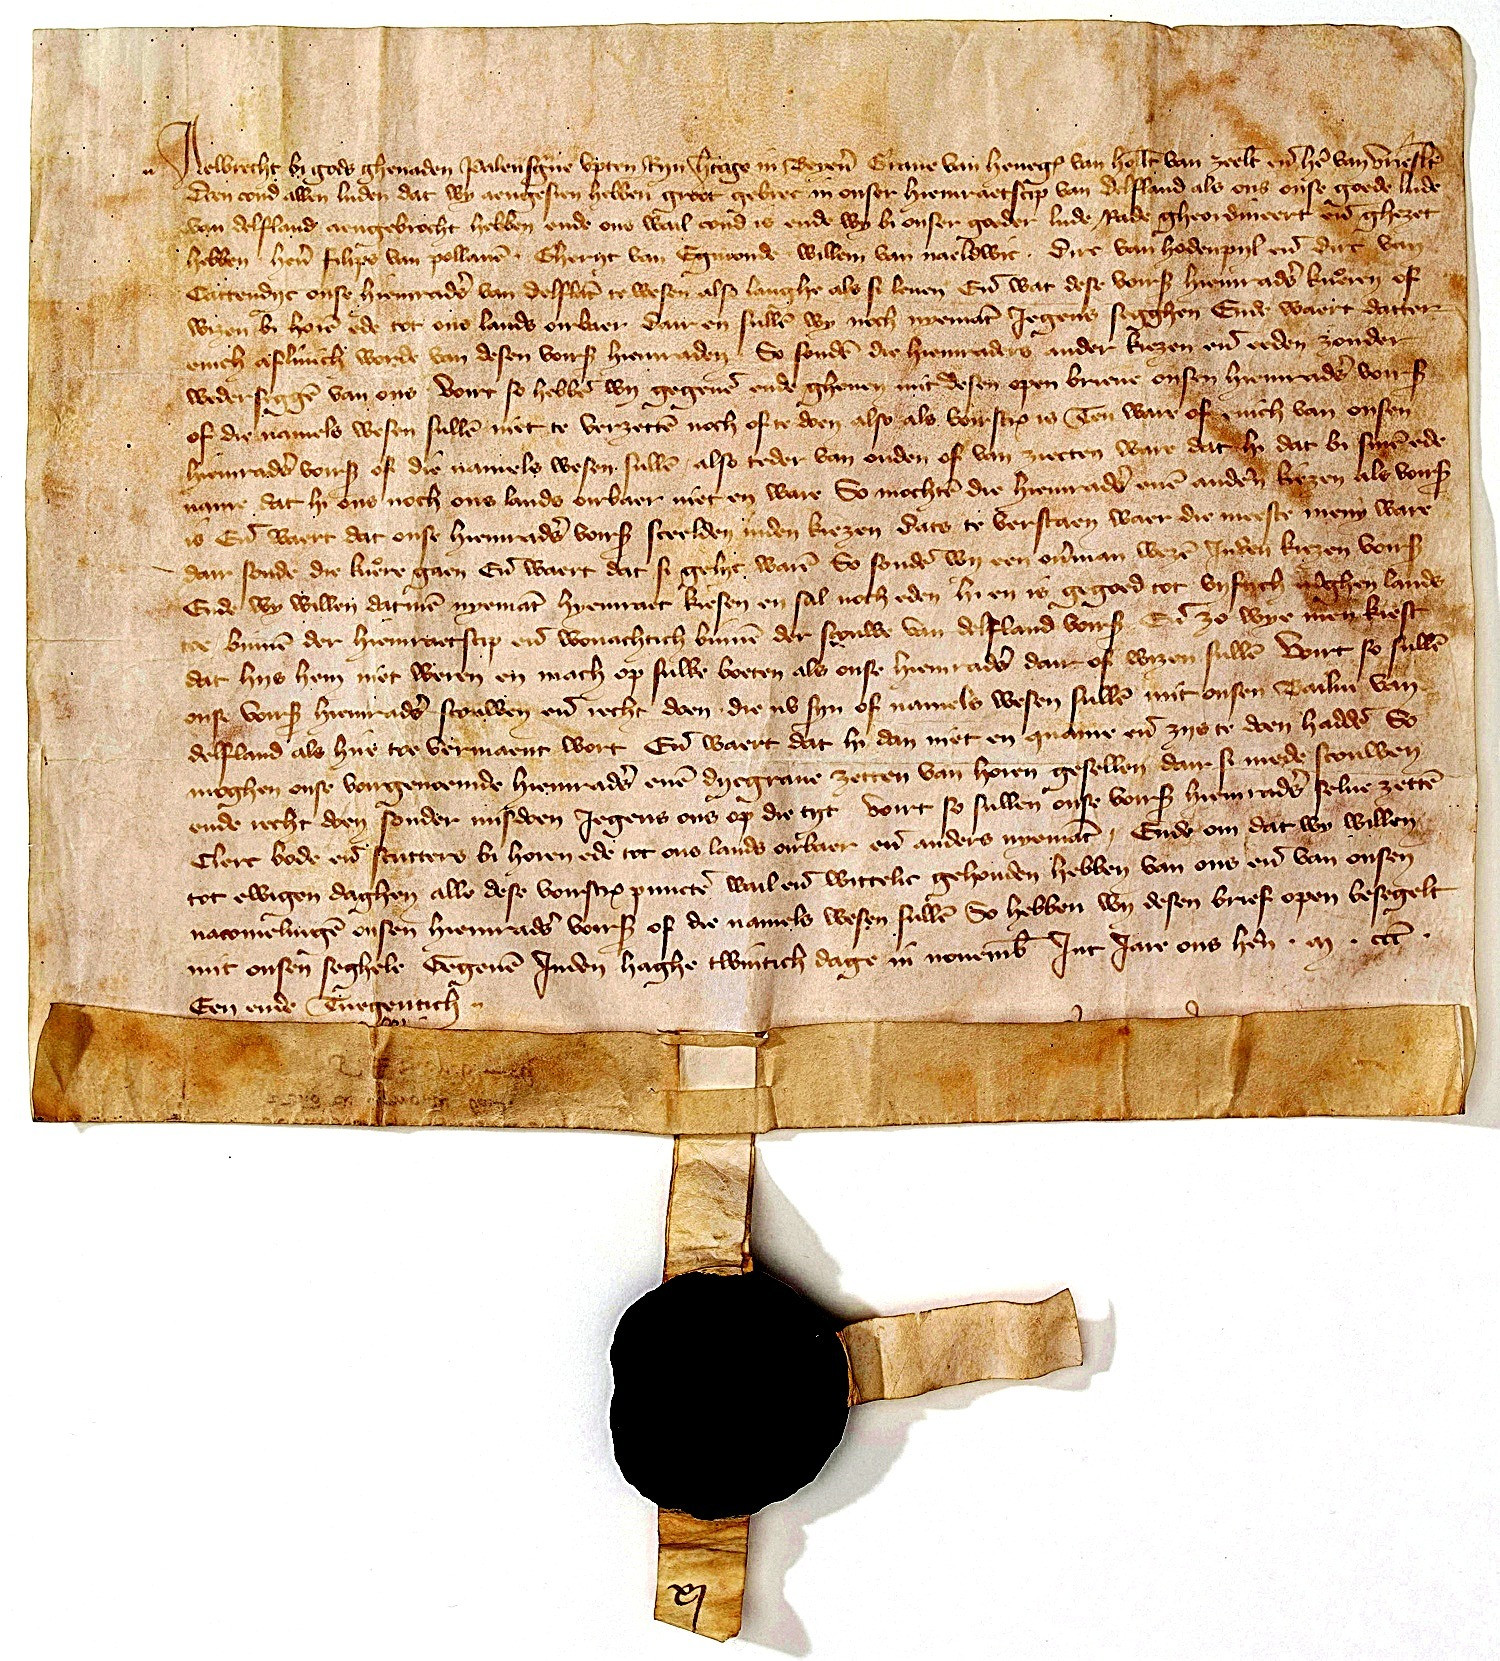 Aelbrecht bi gods ghenaden Palensgue upten Ryn htoge in Beyerē Graue van heneg͛ van hollt van zeelt eñ hē van vrieslt
Doen cond allen luden dat wy aengesien hebben groet gebrec in onser hiemraetscip van delfland als ons onse goede lude
van delfland aengebrocht hebben ende ons wail cond is ende wy bi onser goeder lude Rade gheordineert eñ ghezet
hebben heñ filips van pollanē · Gheryt van Egmonde willem van naeldwic · Dirc van hodenpyl eñ dirc van
Cattendyc onse hiemrad͛s van delflāt te wesen also langhe als si leuen Eñ wat dese voirß hiemrad͛s kuͤren of
wizen bi horē ede tot ons lands oirbaer dair en sullē wy noch nyemāt Jegens segghen Ende waert datter
enich aflinich worde van desen voirß hiemraden · So soudē die hiemraders ander kiezen eñ eeden zonder
wederseggē van ons Voirt so hebbē wy gegeuē ende gheuen mit desen open brieue onsen hiemrad͛s voirß
of die namels wesen sullē niet te verzettē noch of te doen also als voirscr͛ is Ten ware of enich van onsen
hiemrad͛s voirß of die namels wesen sullē also teder van ouden of van ziecten ware dat hi dat bi sinē ede
name dat hi ons noch ons lands oirbaer niet en ware So mochtē die hiemrad͛s enē anderē kiezen als voirß
is Eñ waert dat onse hiemrad͛s voirß sceelden inden kiezen dats te verstaen waer die meeste meny ware
dair soude die kuͤre gaen Eñ waert dat si gelyc warē So soudē wy een ou͛man wezē Inden kiezen voirß
Ende wy willen datmē nyemāt hyemraet kiesen en sal noch eden hi en is gegoed tot vyftich m͛ghen lands
toe binnē der hiemraetscip eñ wonachtich binnē der scouwe van delfland voirß Eñ zo wye men kiest
dat hys hem niet weren en mach op sulke boeten als onse hiemrad͛s dair of wizen sullē Voirt so sullē
onse voirß hiemrad͛s scouwen eñ recht doen die nv syn of namels wesen sullē mit onsen Bailiu van
delfland als hiir toe vermaent wort Eñ waert dat hi dan niet en quame eñ zys te doen haddē So
moghen onse voirgenoemde hiemrad͛s enē dyegraue zetten van horen gesellen dair si mede scouwen
ende recht doen sonder misdoen Jegens ons op die tyt voirt so sullen onse voirß hiemrad͛s selue zettē
Clerc bode eñ scutters bi horen ede tot ons lands oirbaer eñ anders nyemāt / Ende om dat wy willen
tot ewigen daghen alle dese voirscr͛ punctē wail eñ wittelic gehouden hebben van ons eñ van onsen
nacomelingē onsen hiemrad͛s voirß of die namels wesen sullē So hebben wy desen brief open besegelt
mit onsen seghele Gegeuē Inden haghe twintich dage in nouemb͛ Int Jare ons hē͛n · m · ccc ·
Een ende Tnegentich
xl